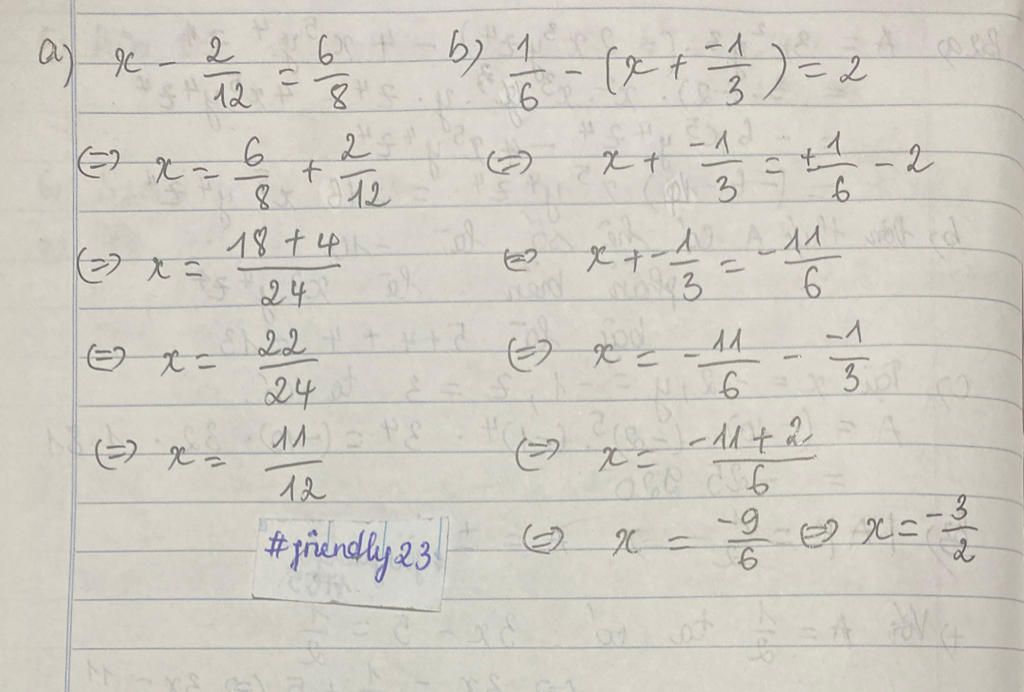 a) x - 2/12 = 6/8
⇔ x = 6/8 + 2/12
⇔ x = (18 + 4)/24
⇔ x = 22/24
⇔ x = 11/12
#friendly23
b) 1/6 - (x + -1/3) = 2
⇔ x + -1/3 = 1/6 - 2
⇔ x + -1/3 = -11/6
⇔ x = -11/6 - -1/3
⇔ x = (-11 + 2)/6
⇔ x = -9/6 ⇔ x = -3/2